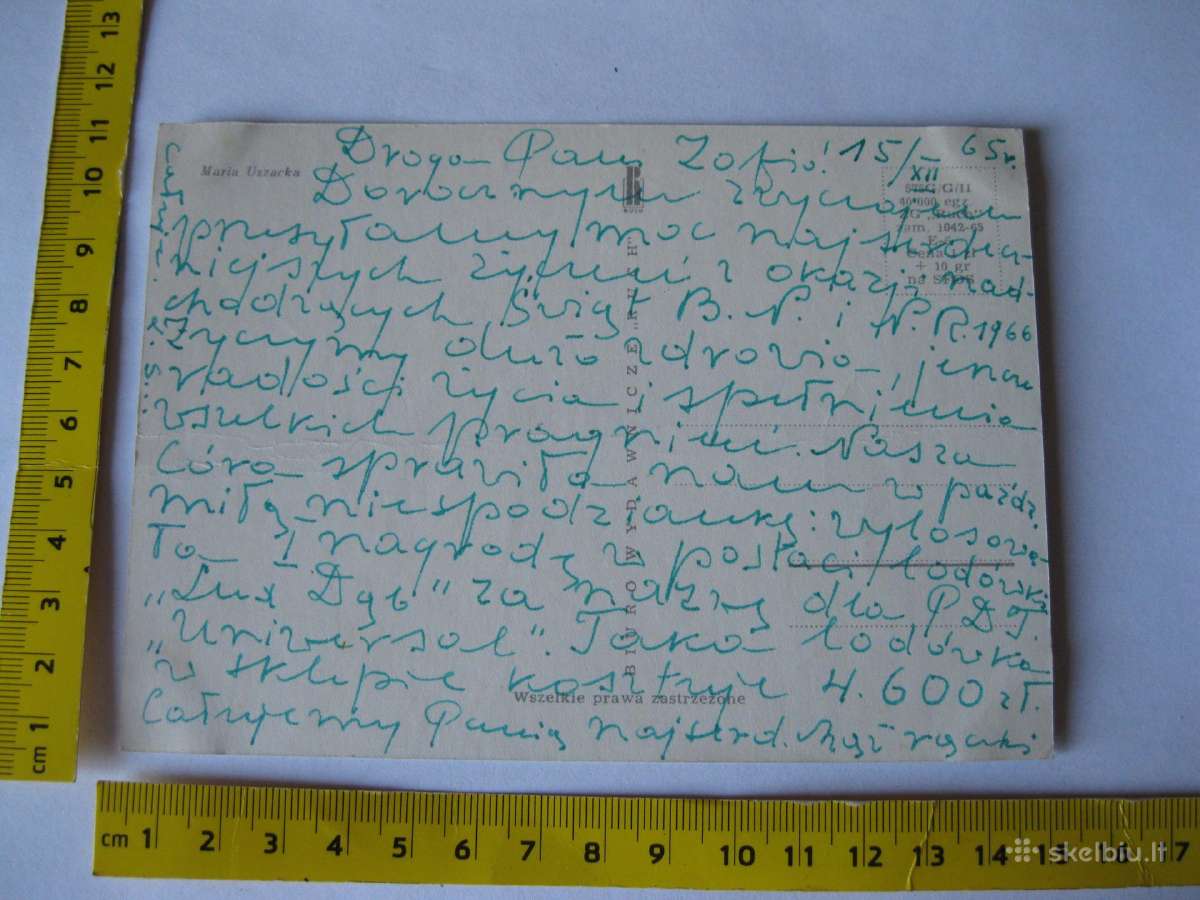 Droga Pani Zofio! 15/XII 65r.
Dorocznym zwyczajem
przesyłamy moc najserdecz-
niejszych życzeń z okazji nad-
chodzących Świąt B. N. i N. R. 1966
Życzymy dużo zdrowia,
radości życia i spełnienia
wszelkich pragnień. Nasza
Córa sprawiła nam w paźdz.
miłą niespodziankę: wylosowa-
ła I nagrodę w postaci lodówki
"Lux Dąb" za nazwę dla PDT.
"Universal". Taka lodówka
w sklepie kosztuje 4.600 zł.
Całujemy Panią najserd. Mąż rączki
Maria Uszacka
RUCH
STSG G/II
40 000 egz
RSW „Prasa”
zam. 1042-65
+ 10 gr
na SFOS
BIURO WYDAWNICZE „RUCH”
Wszelkie prawa zastrzeżone
cm 1 2 3 4 5 6 7 8 9 10 11 12 13
cm 1 2 3 4 5 6 7 8 9 10 11 12 13 14 15 16 17
skelbiu.lt